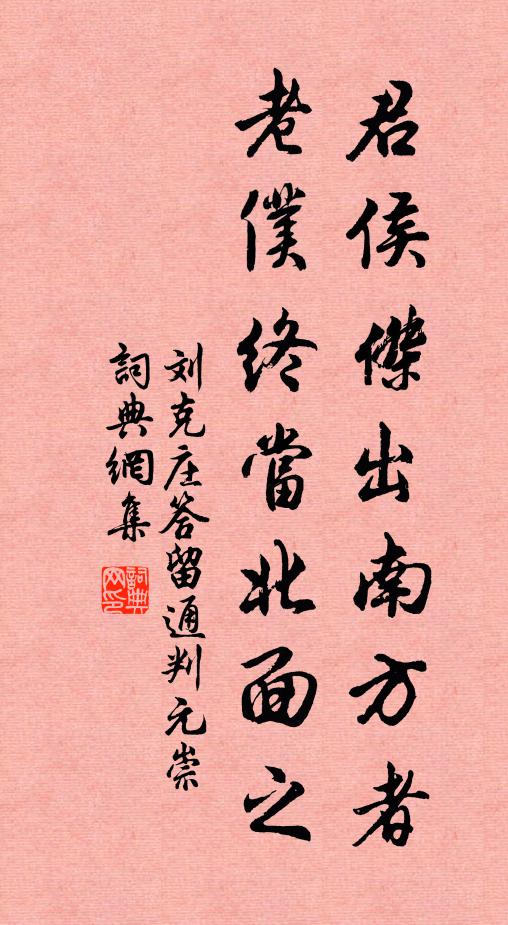 君侯傑出南方者
老僕終當北面之
刘克庄答留通判元崇
詞典網集
詞典网印